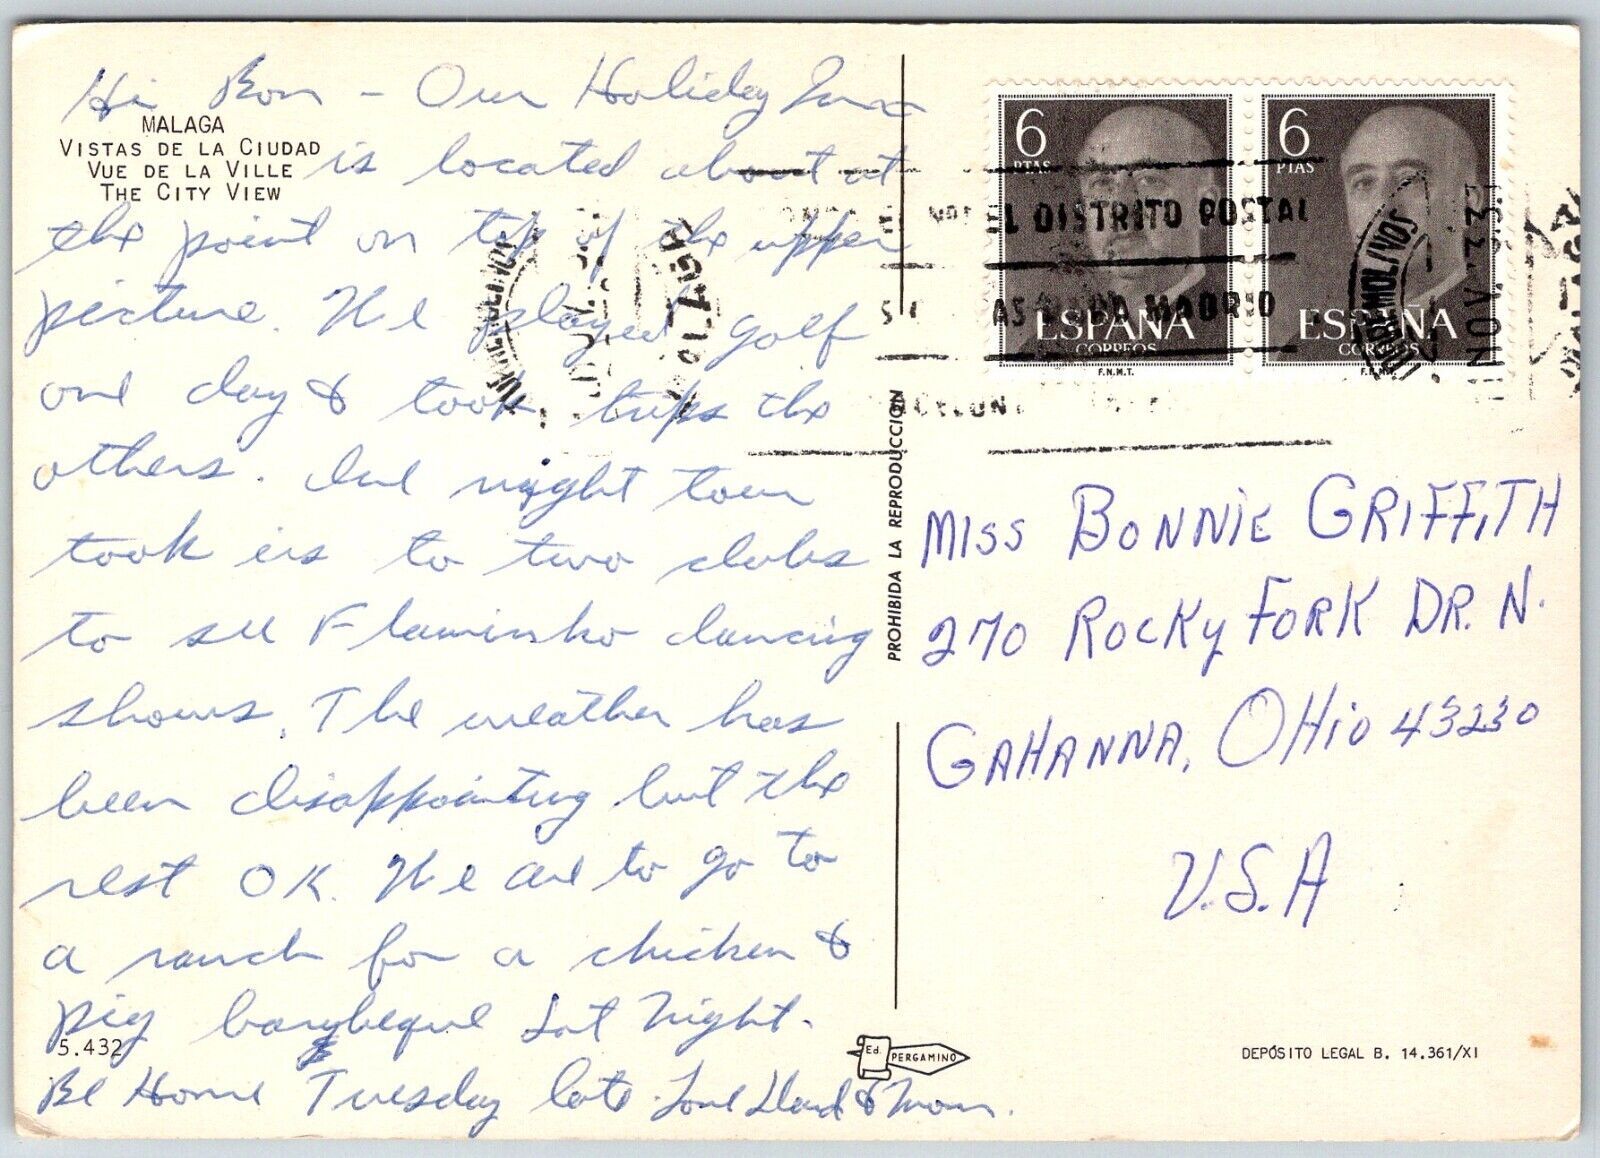 Hi Bon - Our Holiday Inn
MALAGA
VISTAS DE LA CIUDAD
VUE DE LA VILLE
THE CITY VIEW
is located about at
the point on top of the upper
picture. We played golf
one day & took trips the
others. One night tour
took us to two clubs
to see Flaminko dancing
shows. The weather has
been disappointing but the
rest OK. We are to go to
a ranch for a chicken &
pig barybeque Sat Night.
5.432
Be Home Tuesday late. Love Dad & Mom.
PROHIBIDA LA REPRODUCCION
Ed. PERGAMINO
6 PTAS
ESPAÑA
CORREOS
F.N.M.T.
6 PTAS
ESPAÑA
CORREOS
F.N.M.T.
EL DISTRITO POSTAL
MADRID
TORREMOLINOS
MALAGA
MISS BONNIE GRIFFITH
270 ROCKY FORK DR. N.
GAHANNA, OHiO 43230
U.S.A
DEPÓSITO LEGAL B. 14.361/XI